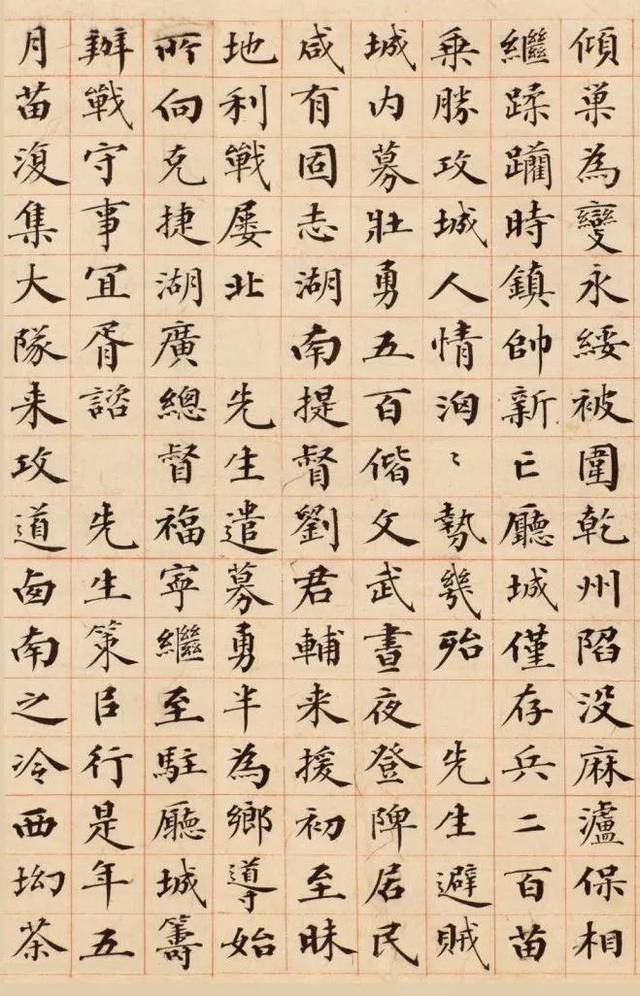 傾巢為變永綏被圍乾州陷没麻瀘保相
繼蹂躪時鎮帥新亡廳城僅存兵二百苗
乘勝攻城人情洶〻勢幾殆 先生避賊
城内募壯勇五百偕文武晝夜登陴居民
咸有固志湖南提督劉君輔来援初至昧
地利戰屢北 先生遣募勇半為鄉導始
所向克捷湖廣總督福寧繼至駐廳城籌
辦戰守事宜胥諮 先生策㠯行是年五
月苗復集大隊来攻道南之冷西坳茶